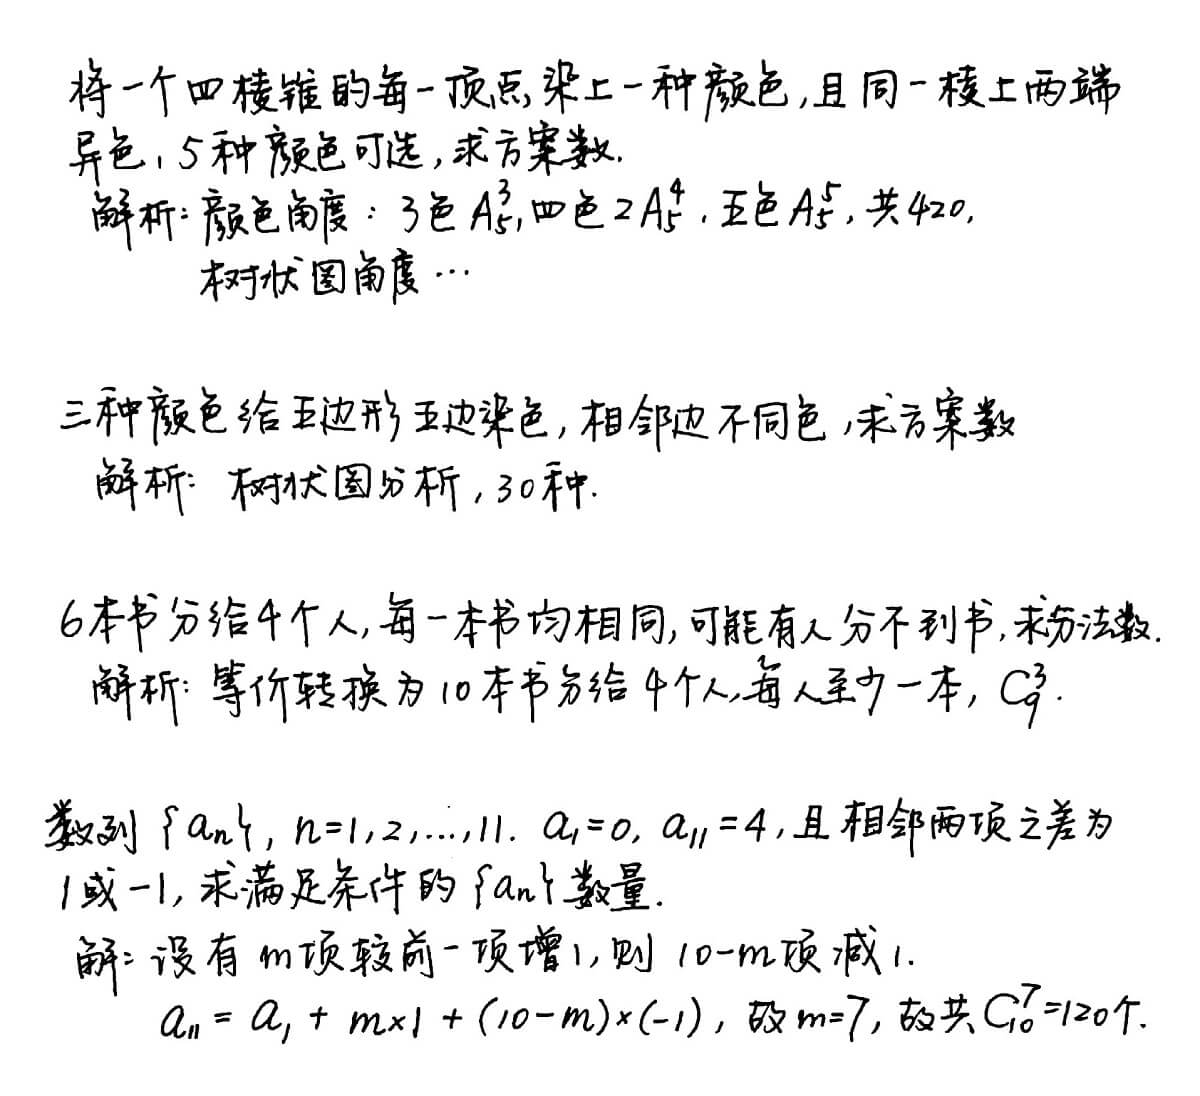 将一个四棱锥的每一顶点染上一种颜色,且同一棱上两端
异色,5种颜色可选,求方案数.
解析:颜色角度:3色A₅³,四色2A₅⁴,五色A₅⁵,共420,
树状图角度…
三种颜色给五边形五边染色,相邻边不同色,求方案数
解析:树状图分析,30种.
6本书分给4个人,每一本书均相同,可能有人分不到书,求方法数.
解析:等价转换为10本书分给4个人,每人至少一本,C₉³.
数列{aₙ},n=1,2,...,11. a₁=0, a₁₁=4,且相邻两项之差为
1或-1,求满足条件的{aₙ}数量.
解:设有m项较前一项增1,则10-m项减1.
a₁₁=a₁+m×1+(10-m)×(-1),故m=7,故共C₁₀⁷=120个.